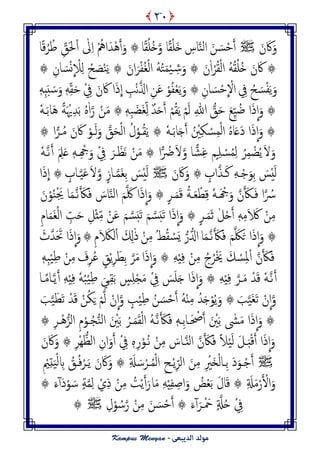 ﴿ ٣٠ ﴾
وَكَانَ ﷺ أَحْسَنَ النَّاسِ خَلْقًا وَخُلُقًا ۞ وَأَهْدَاهُمْ إِلَى الْحَقِّ طُرُقًا
۞ كَانَ خُلُقُهُ الْقُرْآنَ ۞ وَشِيمَتُهُ الْغُفْرَانَ ۞ يَنْصَحُ لِلْإِنْسَانِ ۞
وَيَفْسَحُ فِي الْإِحْسَانِ ۞ وَيَعْفُو عَنِ الذَّنْبِ إِذَا كَانَ فِي حَقِّهِ وَسَبَبِهِ
۞ وَإِذَا ضُيِّعَ حَقُّ اللهِ لَمْ يَقُمْ أَحَدٌ لِغَضَبِهِ ۞ مَنْ رَآهُ بَدِيهَةً هَابَهُ
۞ وَإِذَا دَعَاهُ الْمِسْكِينُ أَجَابَهُ ۞ يَقُولُ الْحَقَّ وَلَوْ كَانَ مُرًّا ۞
وَلَا يُضْمِرُ لِمُسْلِمٍ غِشًّا وَلَا ضُرًّا ۞ مَنْ نَظَرَ فِي وَجْهِهِ عَلِمَ أَنَّهُ
لَيْسَ بِوَجْهِ كَذَّابٍ ۞ وَكَانَ ﷺ لَيْسَ بِغَمَّازٍ وَلَا عَيَّابٍ ۞ إِذَا
سُرَّ فَكَأَنَّ وَجْهَهُ قِطْعَةُ قَمَرٍ ۞ وَإِذَا كَلَّمَ النَّاسَ فَكَأَنَّمَا يَجْنُونَ
مِنْ كَلَامِهِ أَحْلَى ثَمَرٍ ۞ وَإِذَا تَبَسَّمَ تَبَسَّمَ عَنْ مِثْلِ حَبِّ الْغَمَامِ
۞ وَإِذَا تَكَلَّمَ فَكَأَنَّمَا الدُّرُّ يَسْقُطُ مِنْ ذَلِكَ الْكَلَامِ ۞ وَإِذَا تَحَدَّثَ
فَكَأَنَّ الْمِسْكَ يَخْرُجُ مِنْ فِيهِ ۞ وَإِذَا مَرَّ بِطَرِيقٍ عُرِفَ مِنْ طِيبِهِ
أَنَّهُ قَدْ مَرَّ فِيهِ ۞ وَإِذَا جَلَسَ فِي مَجْلِسٍ بَقِيَ طِيبُهُ فِيهِ أَيَّامًا
وَإِنْ تَغَيَّبَ ۞ وَيُوجَدُ مِنْهُ أَحْسَنُ طِيبٍ وَإِنْ لَمْ يَكُنْ قَدْ تَطَيَّبَ
۞ وَإِذَا مَشَى بَيْنَ أَصْحَابِهِ فَكَأَنَّهُ الْقَمَرُ بَيْنَ النُّجُومِ الزُّهْرِ ۞
وَإِذَا أَقْبَلَ لَيْلًا فَكَأَنَّ النَّاسَ مِنْ نُورِهِ فِي أَوَانِ الظُّهْرِ ۞ وَكَانَ
ﷺ أَجْوَدَ بِالْخَيْرِ مِنَ الرِّيحِ الْمُرْسَلَةِ ۞ وَكَانَ يَرْفُقُ بِالْيَتِيمِ
وَالْأَرْمَلَةِ ۞ قَالَ بَعْضُ وَاصِفِيهِ مَا رَأَيْتُ مِنْ ذِي لِمَّةٍ سَوْدَآءَ
فِي حُلَّةٍ حَمْرَآءَ ۞ أَحْسَنَ مِنْ رَسُوْلِ اللهِ ﷺ ۞
Kampus Menyan - مولد الديبعى